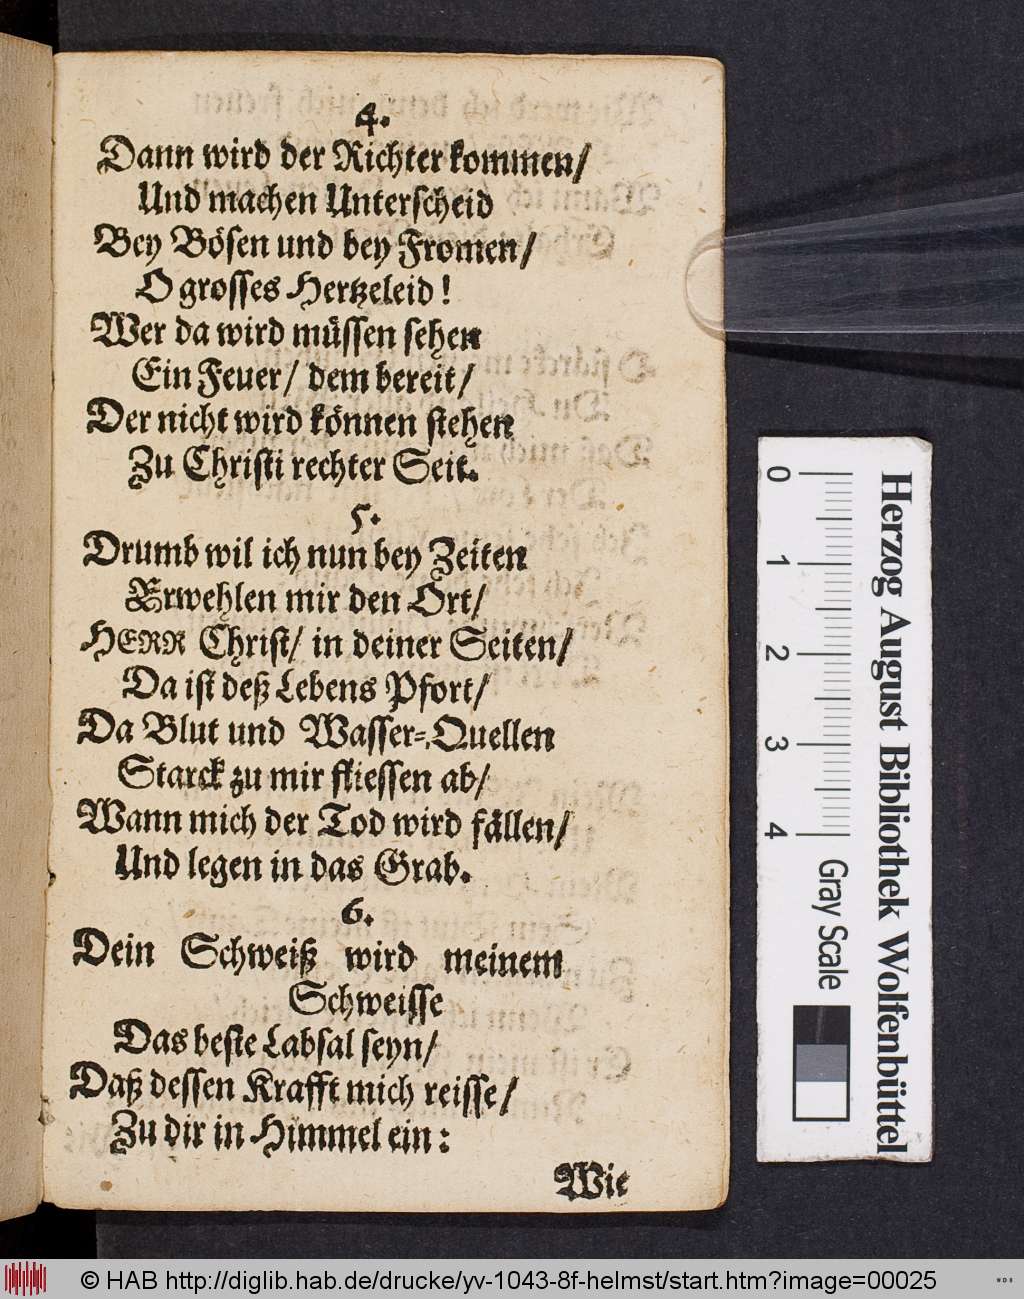 4.
Dann wird der Richter kommen/
Und machen Unterscheid
Bey Bösen und bey Fromen/
O grosses Hertzeleid!
Wer da wird müssen sehen
Ein Feuer/ dem bereit/
Der nicht wird können stehen
Zu Christi rechter Seit.
5.
Drumb wil ich nun bey Zeiten
Erwehlen mir den Ort/
HERR Christ/ in deiner Seiten/
Da ist deß Lebens Pfort/
Da Blut und Wasser-Quellen
Starck zu mir fliessen ab/
Wann mich der Tod wird fällen/
Und legen in das Grab.
6.
Dein Schweiß wird meinem
Schweisse
Das beste Labsal seyn/
Daß dessen Krafft mich reisse/
Zu dir in Himmel ein:
Wie
0 1 2 3 4 Gray Scale
Herzog August Bibliothek Wolfenbüttel
© HAB http://diglib.hab.de/drucke/yv-1043-8f-helmst/start.htm?image=00025